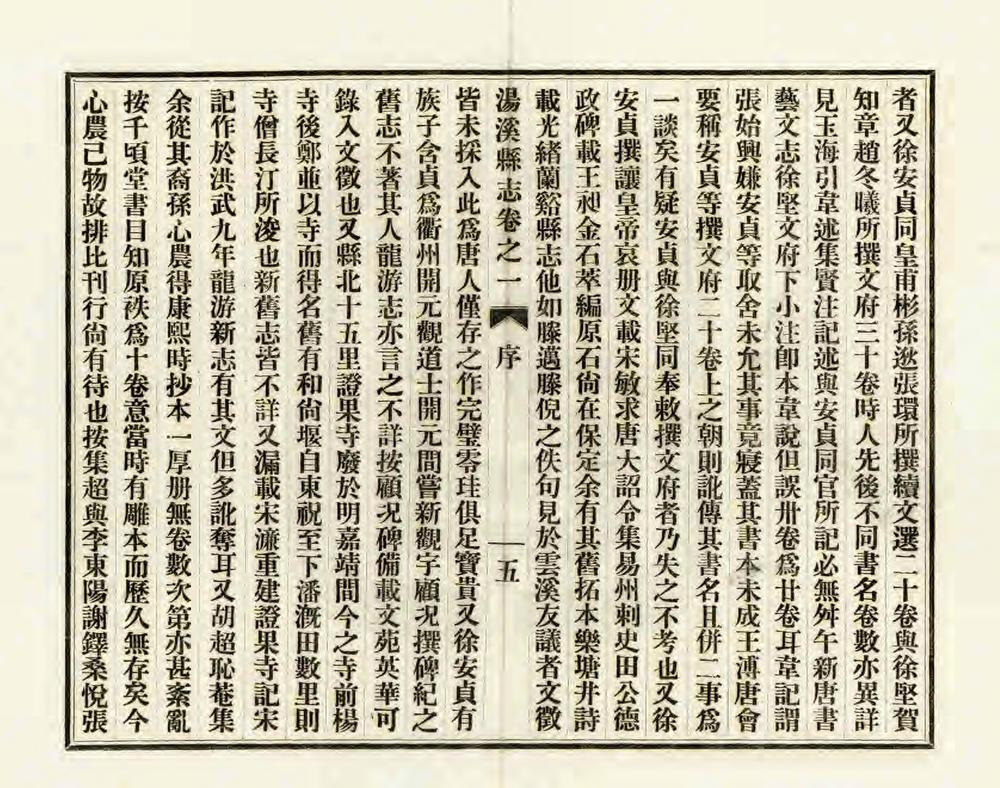 者又徐安貞同皇甫彬孫逖張環所撰續文選二十卷與徐堅賀
知章趙冬曦所撰文府三十卷時人先後不同書名卷數亦異詳
見玉海引韋述集賢注記述與安貞同官所記必無舛午新唐書
藝文志徐堅文府下小注卽本韋說但誤卅卷爲廿卷耳韋記謂
張始興嫌安貞等取舍未允其事竟寢蓋其書本未成王溥唐會
要稱安貞等撰文府二十卷上之朝則訛傳其書名且併二事爲
一談矣有疑安貞與徐堅同奉敕撰文府者乃失之不考也又徐
安貞撰讓皇帝哀册文載宋敏求唐大詔令集易州刺史田公德
政碑載王昶金石萃編原石尙在保定余有其舊拓本樂塘井詩
載光緒蘭谿縣志他如滕邁滕倪之佚句見於雲溪友議者文徵
湯溪縣志卷之一　序　五
皆未採入此爲唐人僅存之作完璧零珪俱足寶貴又徐安貞有
族子含貞爲衢州開元觀道士開元間嘗新觀宇顧況撰碑紀之
舊志不著其人龍游志亦言之不詳按顧況碑備載文苑英華可
錄入文徵也又縣北十五里證果寺廢於明嘉靖間今之寺前楊
寺後鄭並以寺而得名舊有和尙堰自東祝至下潘漑田數里則
寺僧長汀所浚也新舊志皆不詳又漏載宋濂重建證果寺記宋
記作於洪武九年龍游新志有其文但多訛奪耳又胡超恥菴集
余從其裔孫心農得康熙時抄本一厚册無卷數次第亦甚紊亂
按千頃堂書目知原袟爲十卷意當時有雕本而歷久無存矣今
心農已物故排比刊行尙有待也按集超與李東陽謝鐸桑悅張